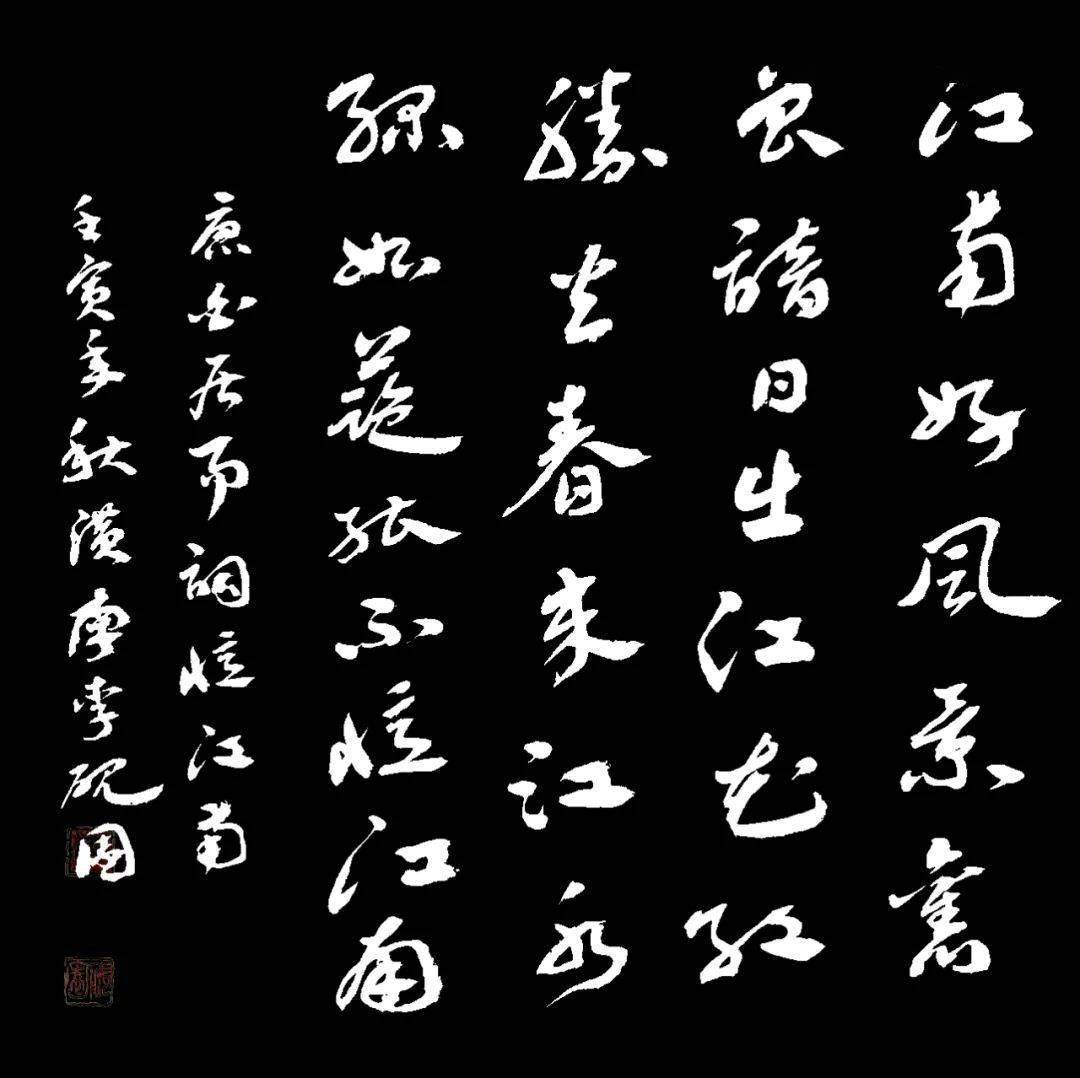 江南好風景舊
曾諳日出江花紅
勝火春來江水
綠如藍能不憶江南
唐白居易詞憶江南
壬寅年秋潢李硯